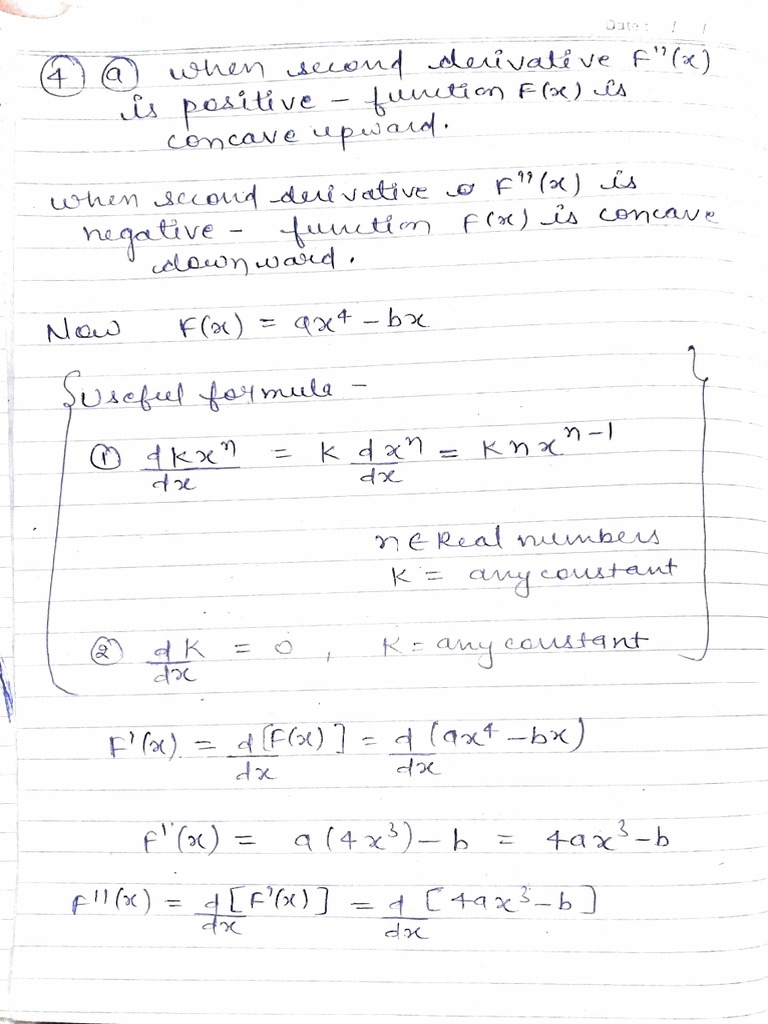 Date: / /
④ ⓐ when second derivative F''(x)
is positive - function F(x) is
concave upward.
when second derivative F''(x) is
negative - function F(x) is concave
downward.
Now F(x) = ax⁴ - bx
{ Useful formula - }
① dkxⁿ/dx = K dxⁿ/dx = Knxⁿ⁻¹
n ∈ Real numbers
K = any constant
② dK/dx = 0 , K = any constant
F'(x) = d[F(x)]/dx = d/dx (ax⁴ - bx)
F'(x) = a(4x³) - b = 4ax³ - b
F''(x) = d/dx [F'(x)] = d/dx [4ax³ - b]